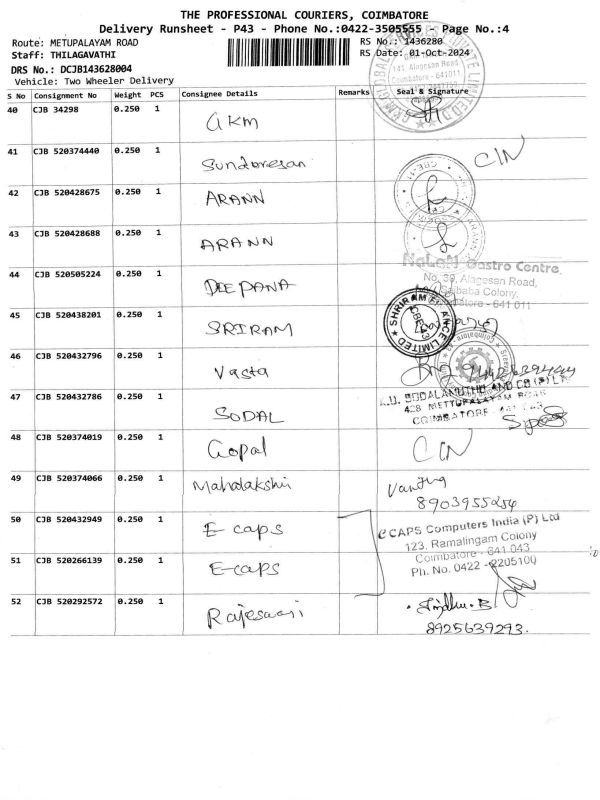 THE PROFESSIONAL COURIERS, COIMBATORE
Delivery Runsheet - P43 - Phone No.:0422-3505555 Page No.:4
Route: METUPALAYAM ROAD
RS No.: 1436280
Staff: THILAGAVATHI
RS Date: 01-Oct-2024
DRS No.: DCJB143628004
141, Alagesan Road
Coimbatore - 641011
Vehicle: Two Wheeler Delivery
S No Consignment No Weight PCS Consignee Details Remarks Seal & Signature
40 CJB 34298 0.250 1 GKM
41 CJB 520374440 0.250 1 Sundaresan CIN
42 CJB 520428675 0.250 1 ARANN
43 CJB 520428688 0.250 1 ARANN
NaLaN Gastro Centre,
No. 39, Alagesan Road,
Saibaba Colony,
Coimbatore - 641 011
44 CJB 520505224 0.250 1 DEEPANA
45 CJB 520438201 0.250 1 SRIRAM
SHRIRAM LIMITED
46 CJB 520432796 0.250 1 Vasta
47 CJB 520432786 0.250 1 SODAL
428 METTUPALAYAM ROAD
COIMBATORE
48 CJB 520374019 0.250 1 Gopal CIN
49 CJB 520374066 0.250 1 Mahalakshmi
8903955254
50 CJB 520432949 0.250 1 E-caps
e CAPS Computers India (P) Ltd
123, Ramalingam Colony
Coimbatore - 641 043
Ph. No. 0422 - 2205100
51 CJB 520266139 0.250 1 E-caps
52 CJB 520292572 0.250 1 Rajeswari Sindhu.B
8925639293.